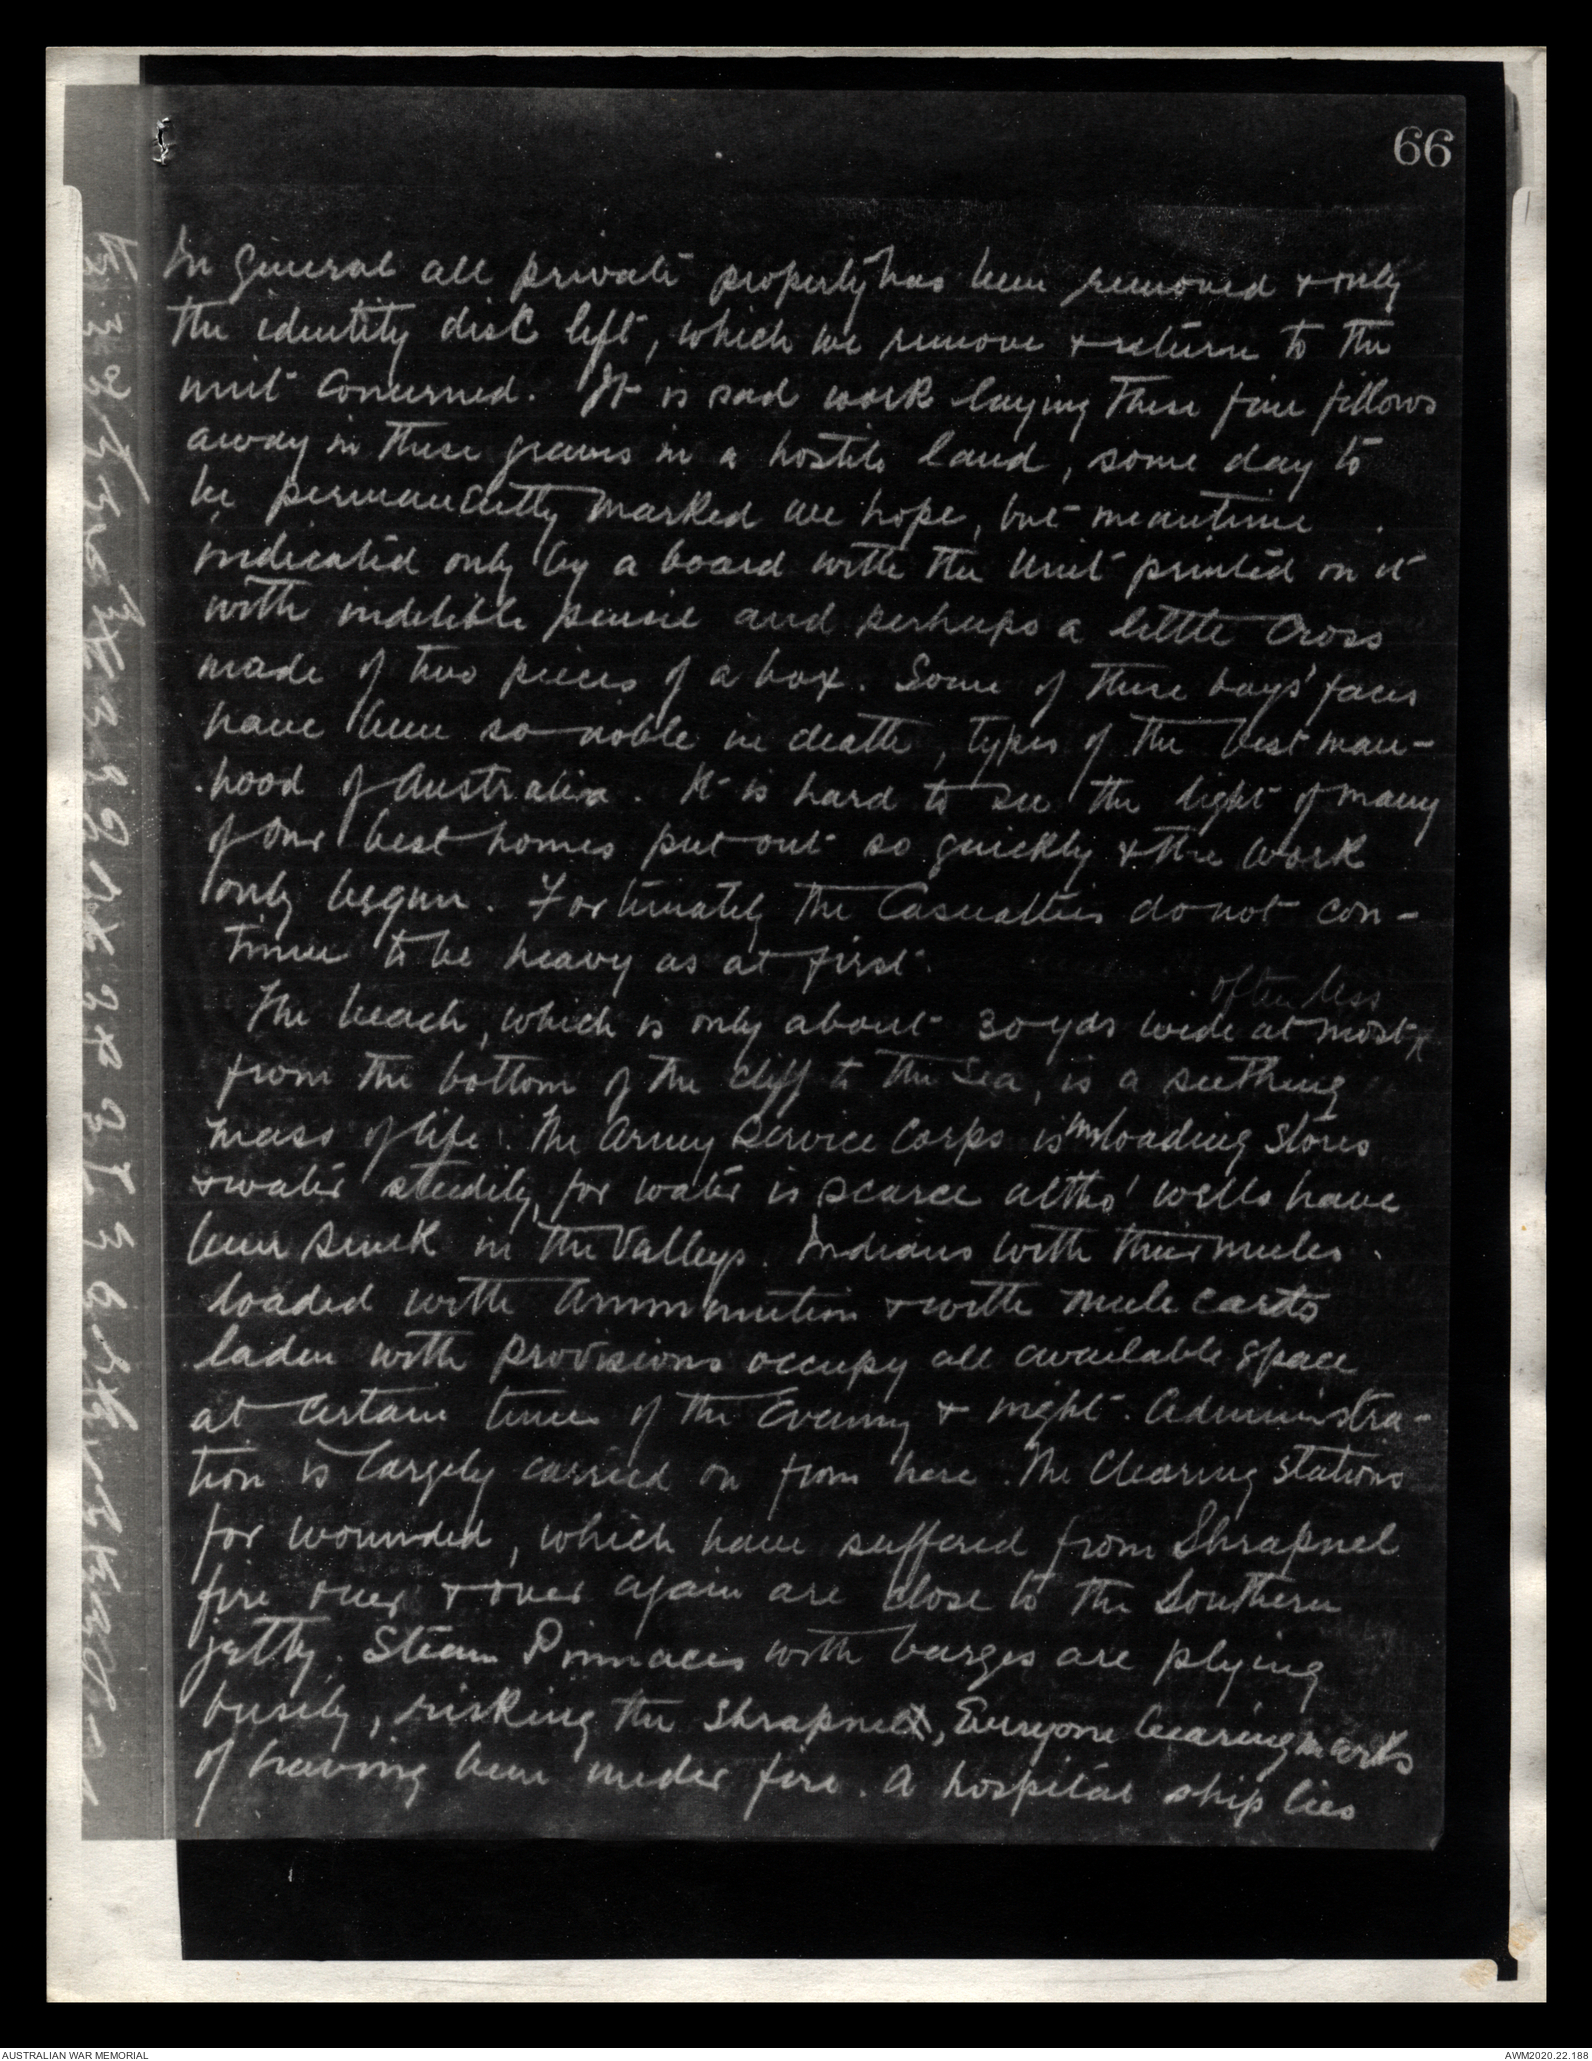 66
In general all private property has been removed & only
the identity disc left, which we remove & return to the
unit concerned. It is sad work laying these fine fellows
away in these graves in a hostile land, some day to
be permanently marked we hope, but meantime
indicated only by a board with the unit printed on it
with indelible pencil and perhaps a little cross
made of two pieces of a box. Some of these boys' faces
have been so noble in death, types of the best man-
hood of Australia. It is hard to see the light of many
of our best homes put out so quickly & the work
only begun. Fortunately the casualties do not con-
tinue to be heavy as at first.
often less
The beach, which is only about 30 yds wide at most
from the bottom of the cliff to the sea, is a seething
mass of life. The Army Service Corps is unloading stores
& water steadily, for water is scarce altho' wells have
been sunk in the Valleys. Indians with their mules
loaded with ammunition & with mule carts
laden with provisions occupy all available space
at certain times of the Evening & night. Administra-
tion is largely carried on from here. The Clearing Stations
for wounded, which have suffered from Shrapnel
fire over & over again are close to the Southern
jetty. Steam Pinnaces with barges are plying
busily, risking the Shrapnel, Everyone bearing marks
of having been under fire. A hospital ship lies
AUSTRALIAN WAR MEMORIAL
AWM2020.22.188